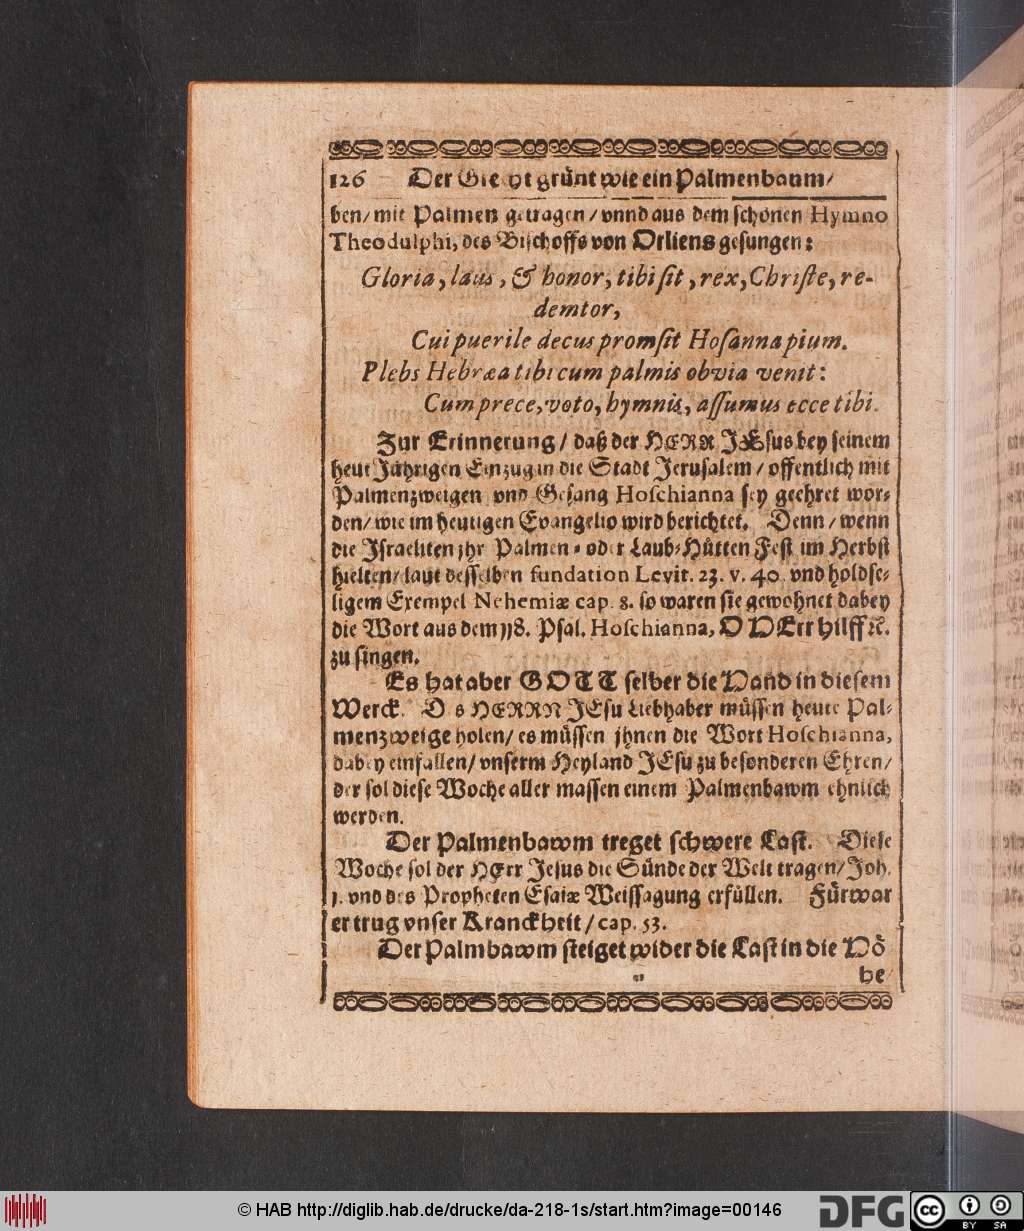 126 Der Gie yt grünt wie ein Palmenbaum/
ben/ mit Palmen getragen/ vnnd aus dem schönen Hymno
Theodulphi, des Bischoffs von Orliens gesungen:
Gloria, laus, & honor, tibi sit, rex, Christe, re-
demtor,
Cui puerile decus promsit Hosanna pium.
Plebs Hebræa tibi cum palmis obvia venit:
Cum prece, voto, hymnis, assumus ecce tibi.
Zur Erinnerung/ daß der HERR JEsus bey seinem
heut Jährigen Einzug in die Stadt Jerusalem/ offentlich mit
Palmenzweigen vnd Gesang Hoschianna sey geehret wor-
den/ wie im heutigen Evangelio wird berichtet. Denn/ wenn
die Israeliten jhr Palmen- oder Laub-Hütten Fest im Herbst
hielten/ laut desselben fundation Levit. 23. v. 40. vnd holdse-
ligem Exempel Nehemiæ cap. 8. so waren sie gewohnet dabey
die Wort aus dem 118. Psal. Hoschianna, O HErr hilff ꝛc.
zu singen.
Es hat aber GOTT selber die Hand in diesem
Werck. D s HERRN JEsu Liebhaber müssen heute Pal-
menzweige holen/ es müssen jhnen die Wort Hoschianna,
dabey einfallen/ vnserm Heyland JEsu zu besonderen Ehren/
der sol diese Woche aller massen einem Palmenbawm ehnlich
werden.
Der Palmenbawm treget schwere Last. Diese
Woche sol der HErr Jesus die Sünde der Welt tragen/ Joh.
1. vnd des Propheten Esaiæ Weissagung erfüllen. Fürwar
er trug vnser Kranckheit/ cap. 53.
Der Palmbawm steiget wider die Last in die Hö
he
© HAB http://diglib.hab.de/drucke/da-218-1s/start.htm?image=00146
DFG
cc
BY SA